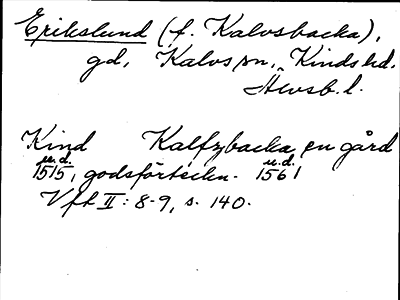 Erikslund (f. Kalvsbacka),
gd, Kalvs sn., Kinds hd.
Älvsb. l.
Kind Kalfzbacka en gård
u.d. u.d.
1515, godsförteckn. 1561
Vft II: 8-9, s. 140.